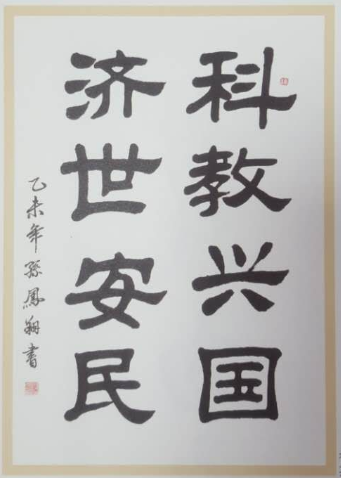 科教兴国
济世安民
乙未年孙凤翔书